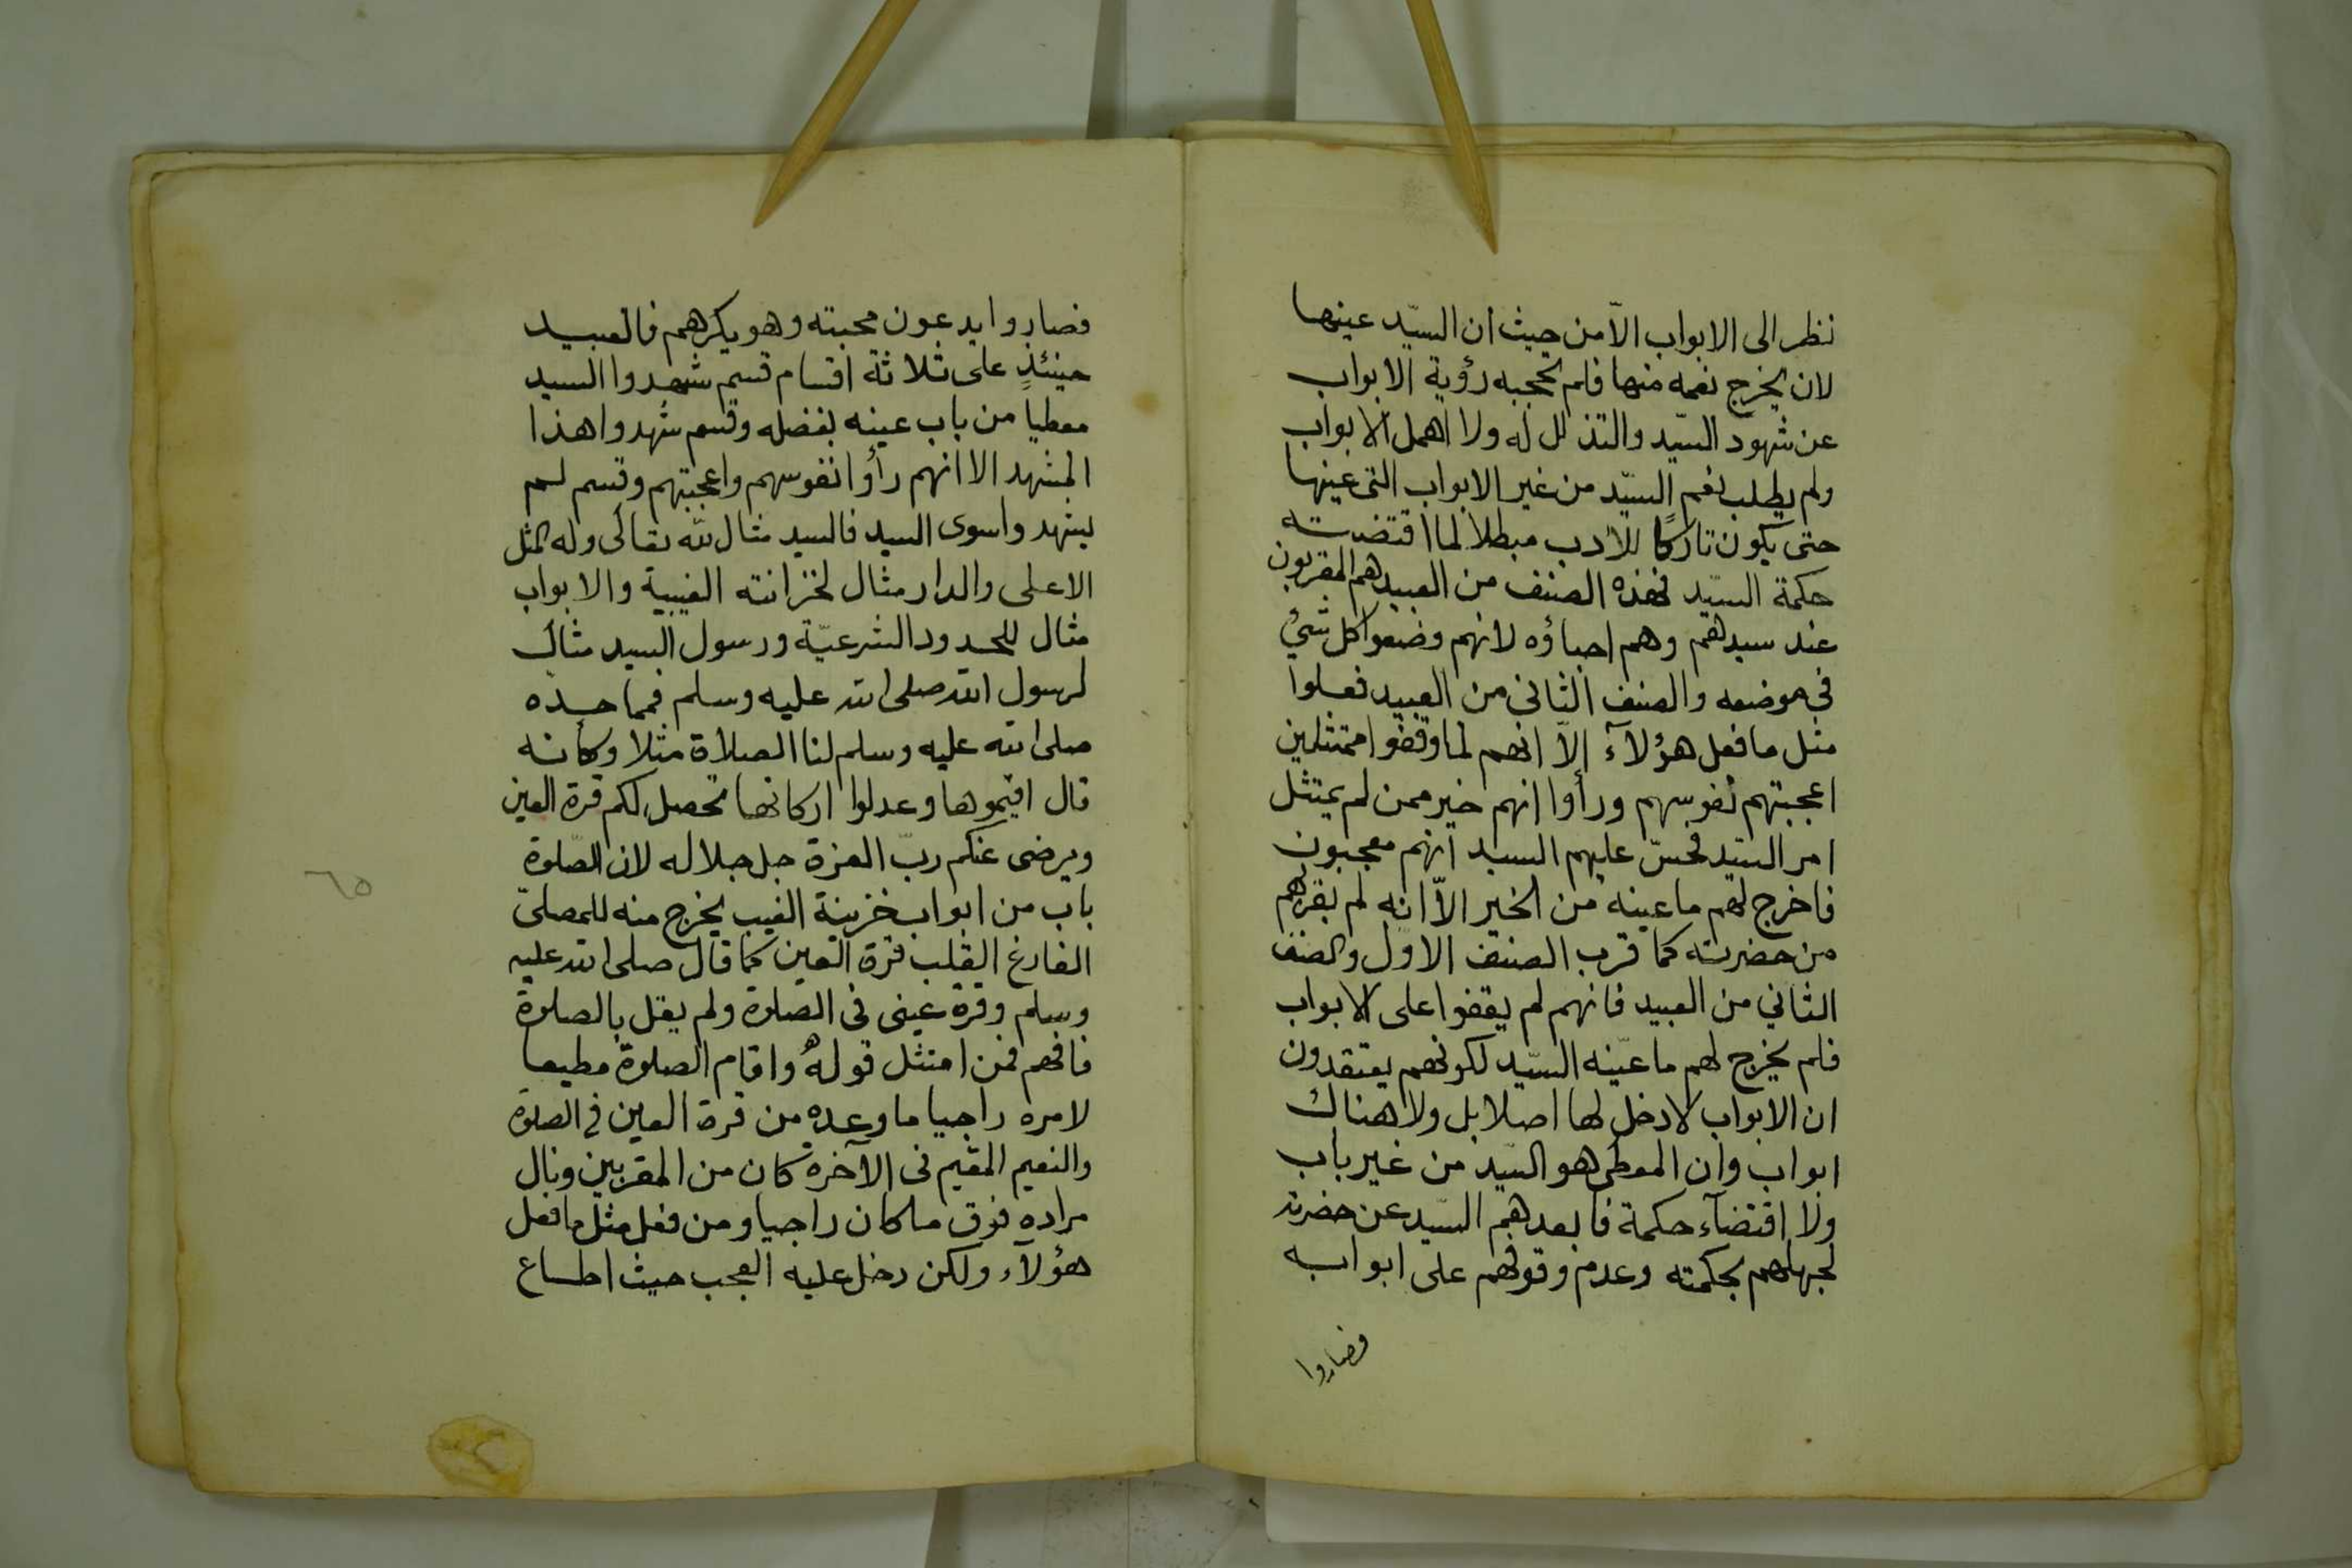 نظر الى الابواب الّا من حيث ان السيّد عينها
لان يخرج نعمه منها فلم تحجبه رؤية الابواب
عن شهود السيّد والتذلل له ولا اهمل الابواب
ولم يطلب نعم السيّد من غير الابواب التى عينها
حتى يكون تاركًا للادب مبطلا لما اقتضته
حكمة السيّد فهذه الصنف من العبيد هم المقربون
عند سيدهم وهم احباؤه لانهم وضعوا كل شئ
فى موضعه والصنف الثانى من العبيد فعلوا
مثل ما فعل هؤلآء إلّا انهم لما وقفوا ممتثلين
اعجبتهم نفوسهم ورأوا انهم خير ممن لم يمتثل
امر السيّد فحسّ عليهم السيد انهم معجبون
فاخرج لهم ما عينه من الخير الّا انه لم يقربهم
من حضرته كما قرب الصنف الاول والصنف
الثاني من العبيد فانهم لم يقفوا على الابواب
فلم يخرج لهم ما عيّنه السيّد لكونهم يعتقدون
ان الابواب لا دخل لها اصلا بل ولا هناك
ابواب وان المعطى هو السّيد من غير باب
ولا اقتضآء حكمة فابعدهم السّيد عن حضرته
لجهلهم بحكمته وعدم وقوفهم على ابوابه
فصاروا
فصاروا يدعون محبته وهو يكرههم فالعبيد
حينئذٍ على ثلاثة اقسام قسم شهدوا السيد
معطياً من باب عينه بفضله وقسم شهدوا هذا
المشهد الا انهم رأوا نفوسهم واعجبتهم وقسم لم
يشهدوا سوى السيد فالسيد مثال لله تعالى وله المثل
الاعلى والدار مثال لخزانته الغيبية والابواب
مثال للحدود الشرعيّة ورسول السيد مثال
لرسول الله صلى الله عليه وسلم فمما حده
صلى الله عليه وسلم لنا الصلاة مثلا وكانه
قال اقيموها وعدلوا اركانها تحصل لكم قرة العين
ويرضى عنكم ربّ العزة جل جلاله لان الصّلوة
باب من ابواب خزينة الغيب يخرج منه للمصلىّ
الفارغ القلب قرة العين كما قال صلى الله عليه
وسلم وقرة عينى فى الصلوة ولم يقل بالصلوة
فافهم فمن امتثل قوله واقام الصلوة مطيعا
لامره راجيا ما وعده من قرة العين فى الصلوة
والنعيم المقيم فى الآخرة كان من المقربين ونال
مراده فوق ما كان راجيا ومن فعل مثل ما فعل
هؤلآء ولكن دخل عليه العجب حيث اطاع
٦٥